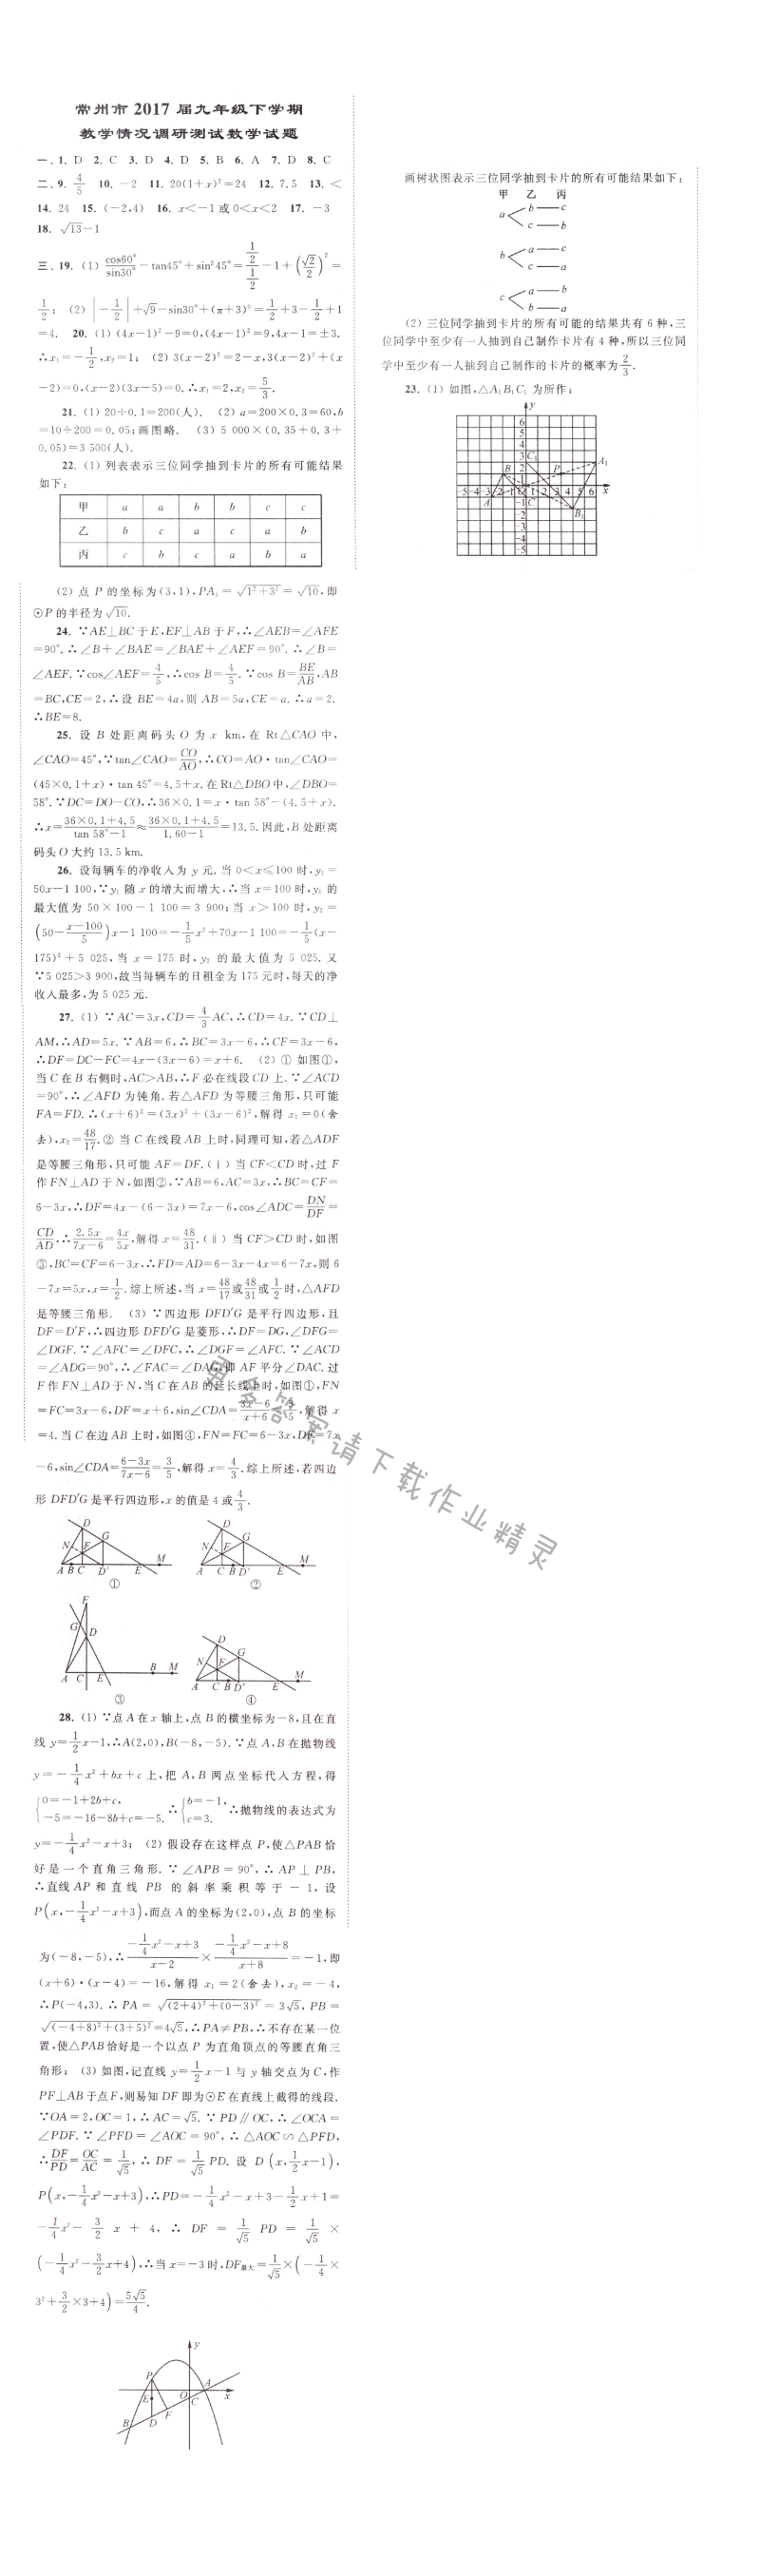 常州市 2017 届九年级下学期
教学情况调研测试数学试题
一、1. D 2. C 3. D 4. D 5. B 6. A 7. D 8. C
二、9. 4/5 10. -2 11. 20(1+x)²=24 12. 7.5 13. <
14. 24 15. (-2,4) 16. x<-1 或 0<x<2 17. -3
18. √13-1
三、19. (1) cos60°/sin30° -tan45°+sin²45°= (1/2)/(1/2) -1+(√2/2)²=
1/2; (2) |-1/2|+√9-sin30°+(π+3)⁰=1/2+3-1/2+1
=4. 20. (1) (4x-1)²-9=0,(4x-1)²=9,4x-1=±3.
∴x₁=-1/2,x₂=1; (2) 3(x-2)²=2-x,3(x-2)²+(x
-2)=0,(x-2)(3x-5)=0.∴x₁=2,x₂=5/3.
21. (1) 20÷0.1=200(人). (2) a=200×0.3=60,b
=10÷200=0.05;画图略. (3) 5 000×(0.35+0.3+
0.05)=3 500(人).
22. (1) 列表表示三位同学抽到卡片的所有可能结果
如下:
甲 a a b b c c
乙 b c a c a b
丙 c b c a b a
(2) 点 P 的坐标为(3,1),PA₁=√1²+3²=√10,即
⊙P 的半径为√10.
24. ∵AE⊥BC 于 E,EF⊥AB 于 F,∴∠AEB=∠AFE
=90°.∴∠B+∠BAE=∠BAE+∠AEF=90°.∴∠B=
∠AEF.∵cos∠AEF=4/5,∴cos B=4/5.∵cos B=BE/AB,AB
=BC,CE=2,∴设 BE=4a,则 AB=5a,CE=a.∴a=2.
∴BE=8.
25. 设 B 处距离码头 O 为 x km,在 Rt△CAO 中,
∠CAO=45°,∵tan∠CAO=CO/AO,∴CO=AO·tan∠CAO=
(45×0.1+x)·tan 45°=4.5+x.在Rt△DBO中,∠DBO=
58°.∵DC=DO-CO,∴36×0.1=x·tan 58°-(4.5+x).
∴x=(36×0.1+4.5)/(tan 58°-1)≈(36×0.1+4.5)/(1.60-1)=13.5.因此,B 处距离
码头 O 大约 13.5 km.
26. 设每辆车的净收入为 y 元.当 0<x≤100 时,y₁=
50x-1 100,∵y₁ 随 x 的增大而增大,∴当 x=100 时,y₁ 的
最大值为 50×100-1 100=3 900;当 x>100 时,y₂=
(50-(x-100)/5)x-1 100=-1/5x²+70x-1 100=-1/5(x-
175)²+5 025,当 x=175 时,y₂ 的最大值为 5 025.又
∵5 025>3 900,故当每辆车的日租金为 175 元时,每天的净
收入最多,为 5 025 元.
27. (1) ∵AC=3x,CD=4/3AC,∴CD=4x.∵CD⊥
AM,∴AD=5x.∵AB=6,∴BC=3x-6,∴CF=3x-6,
∴DF=DC-FC=4x-(3x-6)=x+6. (2) ① 如图①,
当 C 在 B 右侧时,AC>AB,∴F 必在线段 CD 上.∵∠ACD
=90°,∴∠AFD 为钝角.若△AFD 为等腰三角形,只可能
FA=FD.∴(x+6)²=(3x)²+(3x-6)²,解得 x₁=0(舍
去),x₂=48/17.② 当 C 在线段 AB 上时,同理可知,若△ADF
是等腰三角形,只可能 AF=DF.(ⅰ) 当 CF<CD 时,过 F
作 FN⊥AD 于 N,如图②,∵AB=6,AC=3x,∴BC=CF=
6-3x,∴DF=4x-(6-3x)=7x-6,cos∠ADC=DN/DF=
CD/AD,∴2.5x/(7x-6)=4x/5x,解得 x=48/31.(ⅱ) 当 CF>CD 时,如图
③,BC=CF=6-3x,∴FD=AD=6-3x-4x=6-7x,则 6
-7x=5x,x=1/2.综上所述,当 x=48/17或48/31或1/2时,△AFD
是等腰三角形. (3) ∵四边形 DFD′G 是平行四边形,且
DF=D′F,∴四边形 DFD′G 是菱形,∴DF=DG,∠DFG=
∠DGF.∵∠AFC=∠DFC,∴∠DGF=∠AFC.∵∠ACD
=∠ADG=90°,∴∠FAC=∠DAG,即 AF 平分∠DAC.过
F 作 FN⊥AD 于 N,当 C 在 AB 的延长线上时,如图①,FN
=FC=3x-6,DF=x+6,sin∠CDA=(3x-6)/(x+6)=3/5,解得 x
=4.当 C 在边 AB 上时,如图④,FN=FC=6-3x,DF=7x
-6,sin∠CDA=(6-3x)/(7x-6)=3/5,解得 x=4/3.综上所述,若四边
形 DFD′G 是平行四边形,x 的值是 4 或4/3.
D G N F A B C D′ E M ①
D G N F A C B D′ E M ②
F G D A C E B M ③
D G N F A C B D′ E M ④
28. (1) ∵点 A 在 x 轴上,点 B 的横坐标为-8,且在直
线 y=1/2x-1,∴A(2,0),B(-8,-5).∵点 A,B 在抛物线
y=-1/4x²+bx+c 上,把 A,B 两点坐标代入方程,得
{0=-1+2b+c, -5=-16-8b+c=-5. ∴{b=-1, c=3. ∴抛物线的表达式为
y=-1/4x²-x+3; (2) 假设存在这样点 P,使△PAB 恰
好是一个直角三角形.∵∠APB=90°,∴AP⊥PB,
∴直线 AP 和直线 PB 的斜率乘积等于-1,设
P(x,-1/4x²-x+3),而点 A 的坐标为(2,0),点 B 的坐标
为(-8,-5),∴(-1/4x²-x+3)/(x-2)×(-1/4x²-x+8)/(x+8)=-1,即
(x+6)·(x-4)=-16,解得 x₁=2(舍去),x₂=-4,
∴P(-4,3).∴PA=√(2+4)²+(0-3)²=3√5,PB=
√(-4+8)²+(3+5)²=4√5,∴PA≠PB,∴不存在某一位
置,使△PAB恰好是一个以点 P 为直角顶点的等腰直角三
角形; (3) 如图,记直线 y=1/2x-1 与 y 轴交点为 C,作
PF⊥AB于点F,则易知 DF 即为⊙E 在直线上截得的线段.
∵OA=2,OC=1,∴AC=√5.∵PD∥OC,∴∠OCA=
∠PDF.∵∠PFD=∠AOC=90°,∴△AOC∽△PFD,
∴DF/PD=OC/AC=1/√5,∴DF=1/√5PD.设 D(x,1/2x-1),
P(x,-1/4x²-x+3),∴PD=-1/4x²-x+3-1/2x+1=
-1/4x²-3/2x+4,∴DF=1/√5PD=1/√5×
(-1/4x²-3/2x+4),∴当 x=-3 时,DF最大=1/√5×(-1/4×
3²+3/2×3+4)=5√5/4.
y P A O C x E F B D
画树状图表示三位同学抽到卡片的所有可能结果如下:
甲 乙 丙
a b c
c b
b a c
c a
c a b
b a
(2) 三位同学抽到卡片的所有可能的结果共有 6 种,三
位同学中至少有一人抽到自己制作卡片有 4 种,所以三位同
学中至少有一人抽到自己制作的卡片的概率为2/3.
23. (1) 如图,△A₁B₁C₁ 为所作;
y
6
5
4
3 C₁ A₁
B 2 P
1
-5 -4 -3 -2 -1 O 1 2 3 4 5 6 x
A -1 C
-2 B₁
-3
-4
-5
更多答案请下载作业精灵